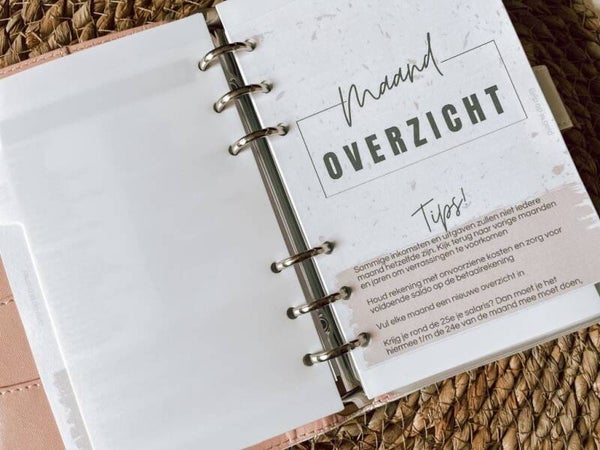 Maand
OVERZICHT
Tips!
Sammige inkomsten en uitgaven zullen niet iedere
maand hetzelfde zijn. Kijk terug naar vorige maanden
en jaren om verrassingen te voorkomen
Houd rekening met onvoorziene kosten en zorg voor
voldoende saldo op de betaalrekening
Vul elke maand een nieuwe overzicht in
Krijg je rond de 25e je salaris? Dan moet je het
hiermee t/m de 24e van de maand mee moet doen,